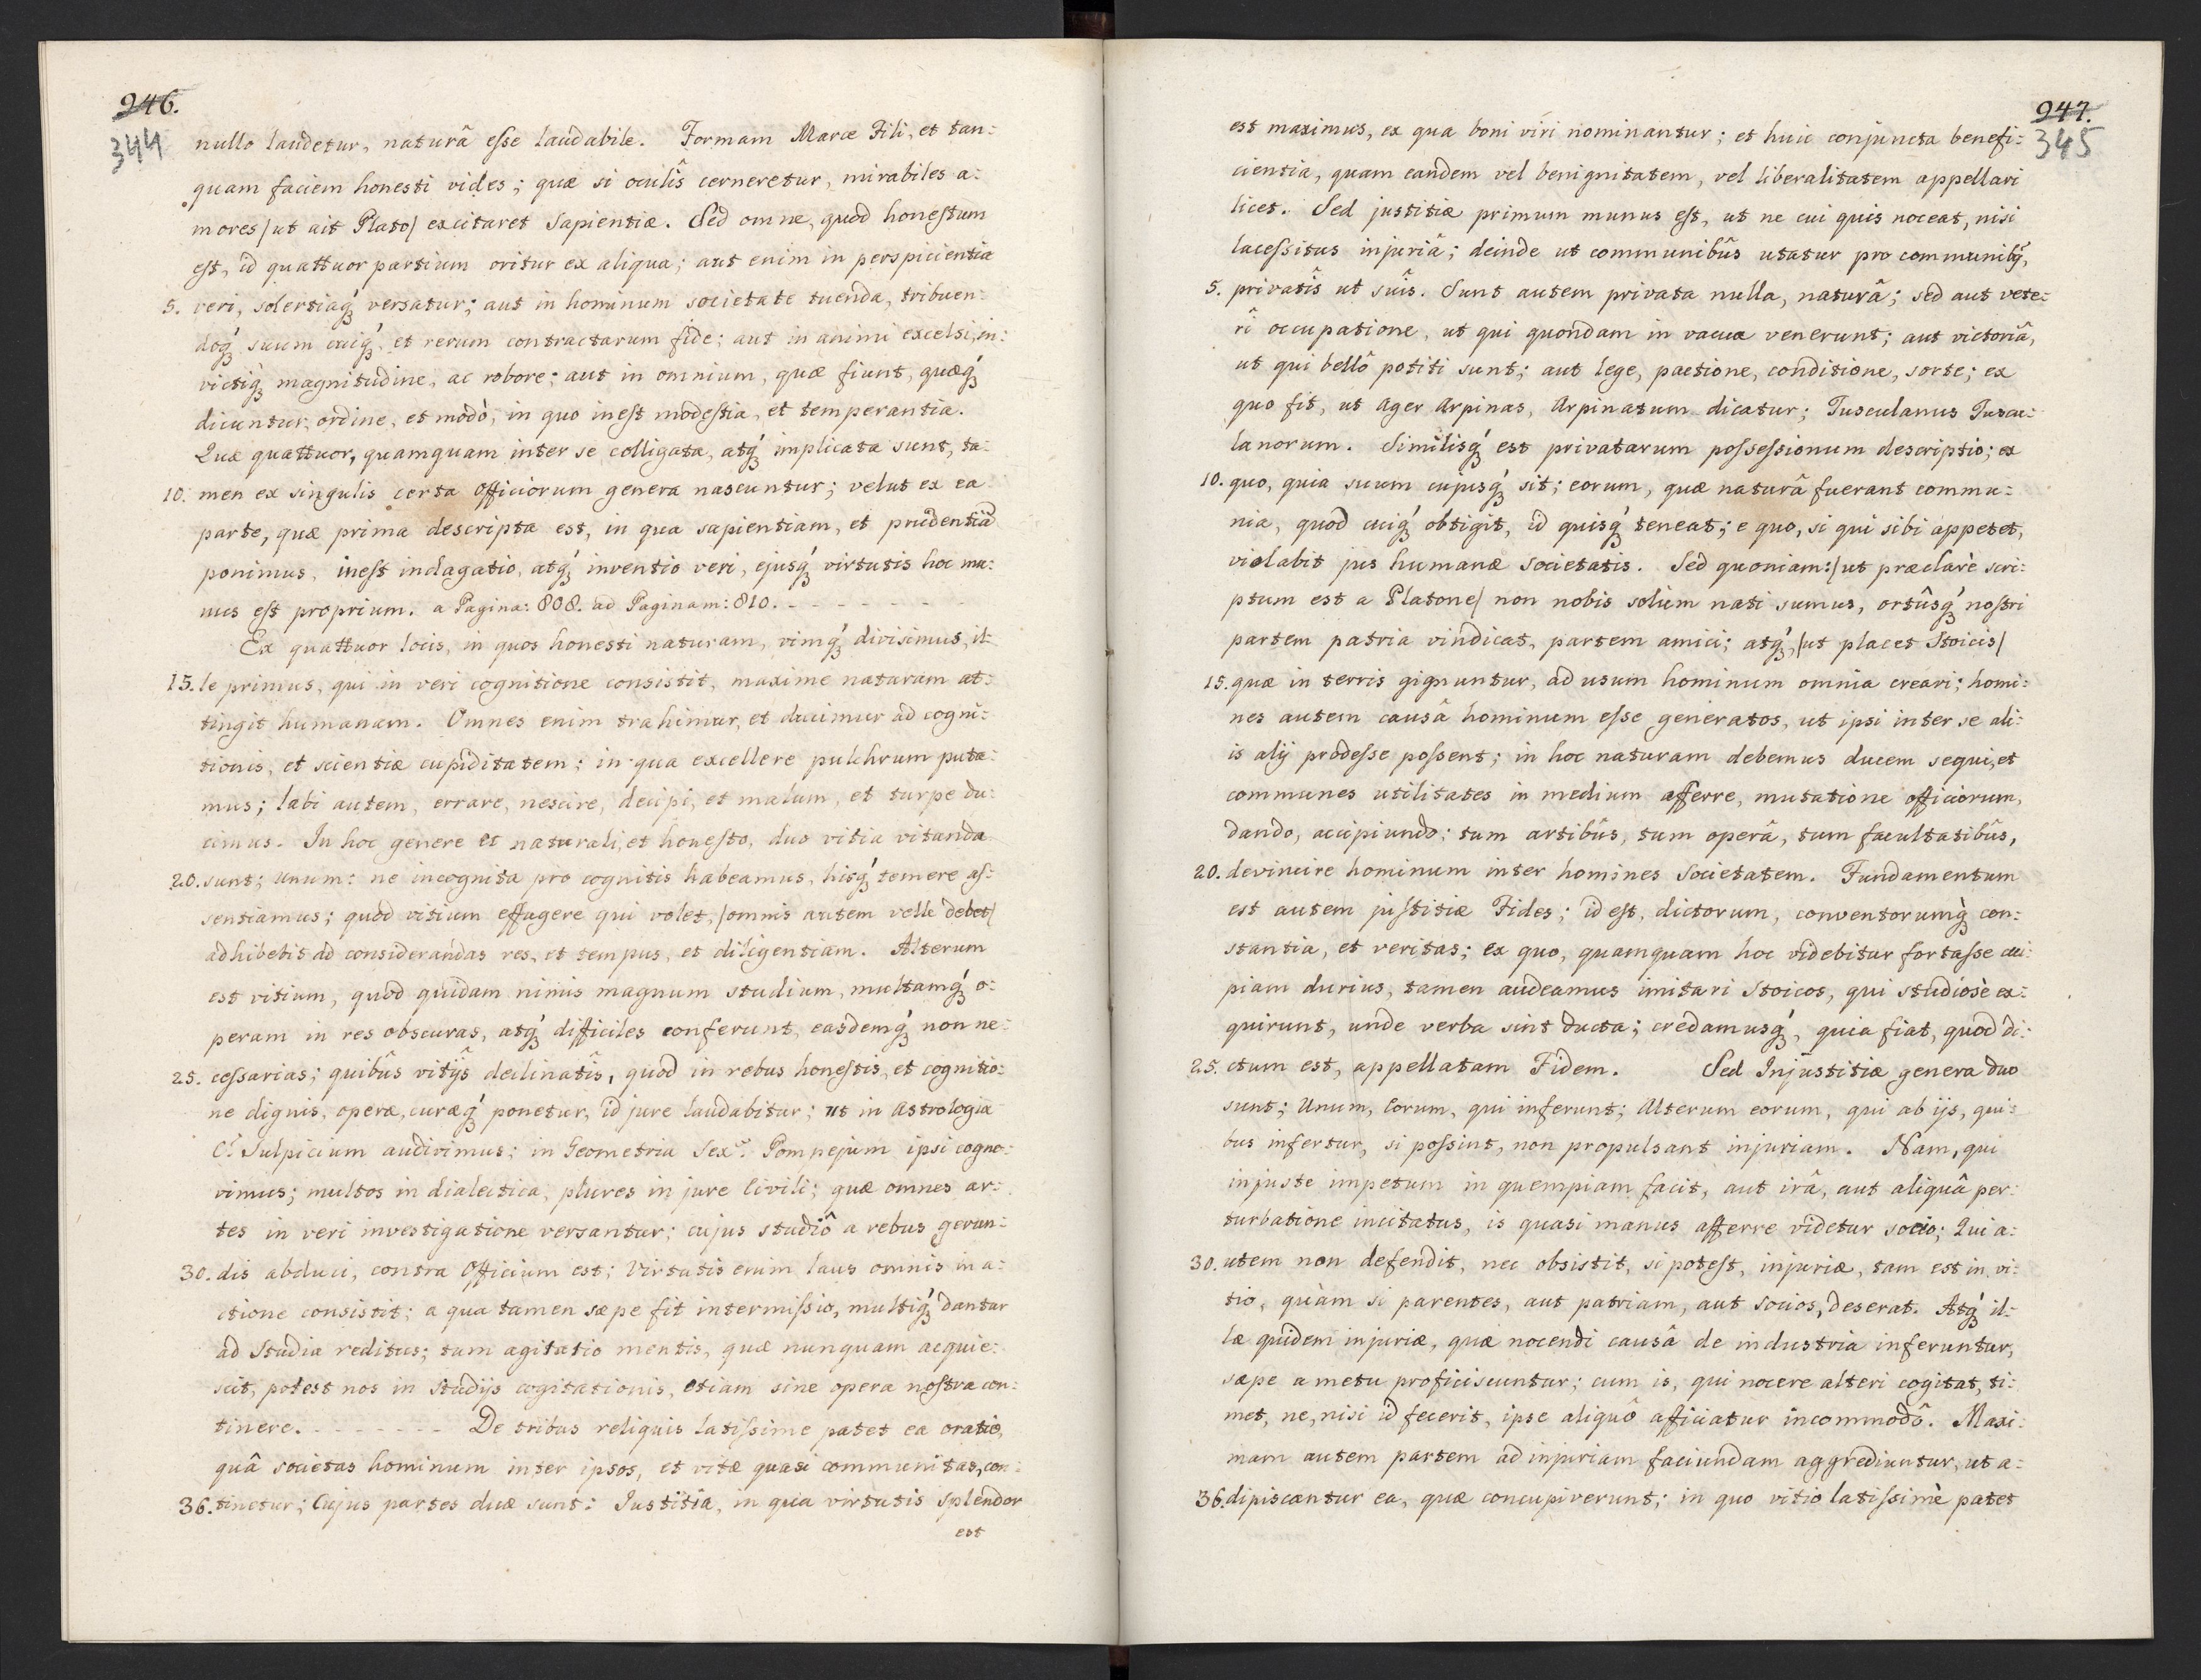 946.
344
nullo laudetur, naturâ esse laudabile. Formam Marce Fili, et tan:
quam faciem honesti vides; quæ si oculîs cerneretur, mirabiles a:
mores/ ut ait Plato/ excitaret Sapientiæ. Sed omne, quod honestum
est, id quattuor partium oritur ex aliqua; aut enim in perspicientia
5. veri, solertiaq́ versatur; aut in hominum societate tuenda, tribuen:
doq́ suum cuiq́, et rerum contractarum fide; aut in animi excelsi, in:
victiq́ magnitudine, ac robore; aut in omnium, quæ fiunt, quæq́
dicuntur, ordine, et modò, in quo inest modestia, et temperantia.
Quæ quattuor, quamquam inter se colligata, atq́ implicata sunt, ta:
10. men ex singulis certa Officiorum genera nascuntur; velut ex ea
parte, quæ prima descripta est, in qua sapientiam, et prudentiã
ponimus, inest indagatio, atq́ inventio veri, ejusq́ virtutis hoc mu:
nus est proprium. a Pagina: 808. ad Paginam: 810. - - - - - - -
Ex quattuor locis, in quos honesti naturam, vimq́ divisimus, il:
15. le primus, qui in veri cognitione consistit, maxime naturam at:
tingit humanam. Omnes enim trahimur, et ducimur ad cogni:
tionis, et scientiæ cupiditatem; in qua excellere pulchrum puta:
mus; labi autem, errare, nescire, decipi, et malum, et turpe du:
cimus. In hoc genere et naturali, et honesto, duo vitia vitanda
20. sunt; Unum: ne incognita pro cognitis habeamus, hisq́ temere as:
sentiamus; quod vitium effugere qui volet, /omnis autem velle debet/
adhibebit ad considerandas res, et tempus, et diligentiam. Alterum
est vitium, quod quidam nimis magnum studium, multamq́ o:
peram in res obscuras, atq́ difficiles conferunt, easdemq́ non ne:
25. cessarias; quibûs vitijs declinatîs, quod in rebus honestis, et cognitio:
ne dignis, operæ, curæq́ ponetur, id jure laudabitur; ut in Astrologia
C: Sulpicium audivimus; in Geometria Sex: Pompejum ipsi cogno:
vimus; multos in dialectica, plures in jure Civili; quæ omnes ar:
tes in veri investigatione versantur; cujus studiô a rebus geren:
30. dis abduci, contra Officium est; Virtutis enim laus omnis in a:
ctione consistit; a qua tamen sæpe fit intermissio, multiq́ dantur
ad Studia reditus; tum agitatio mentis, quæ nunquam acquie:
scit, potest nos in Studijs cogitationis, etiam sine opera nostra con:
tinere. - - - - - - - De tribus reliquis latissime patet ea oratio,
quâ societas hominum inter ipsos, et vitæ quasi communitas, con:
36. tinetur; Cujus partes duæ sunt: Justitia, in qua virtutis Splendor
est
947.
345
est maximus, ex qua boni viri nominantur; et huic conjuncta benefi:
cientia, quam eandem vel benignitatem, vel liberalitatem appellari
licet. Sed justitiæ primum munus est, ut ne cui quis noceat, nisi
lacessitus injuriâ; deinde ut communibûs utatur pro communibq́,
5. privatîs ut suîs. Sunt autem privata nulla, naturâ; sed aut vete:
rî occupatione, ut qui quondam in vacua venerunt; aut victoriâ,
ut qui bellô potiti sunt; aut lege, pactione, conditione, sorte; ex
quo fit, ut Ager Arpinas, Arpinatum dicatur; Tusculanus Tuscu:
lanorum. Similisq́ est privatarum possessionum descriptio; ex
10. quo, quia suum cujusq́ sit; eorum, quæ naturâ fuerant commu:
nia, quod cuiq́ obtigit, id quisq́ teneat; e quo, si qui sibi appetet,
violabit jus humanæ societatis. Sed quoniam:/ut præclarè scri:
ptum est a Platone/ non nobis solùm nati sumus, ortûsq́ nostri
partem patria vindicat, partem amici; atq́, /ut placet Stoicis/
15. quæ in terris gignuntur, ad usum hominum omnia creari; homi:
nes autem causâ hominum esse generatos, ut ipsi inter se ali:
is alij prodesse possent; in hoc naturam debemus ducem sequi, et
communes utilitates in medium afferre, mutatione officiorum,
dando, accipiundo; tum artibûs, tum operâ, tum facultatibûs,
20. devincire hominum inter homines Societatem. Fundamentum
est autem justitiæ Fides; id est, dictorum, conventorumq́ con:
stantia, et veritas; ex quo, quamquam hoc videbitur fortasse cui:
piam durius, tamen audeamus imitari Stoicos, qui studiosè ex:
quirunt, unde verba sint ducta; credamusq́, quia fiat, quod di:
25. ctum est, appellatam Fidem. Sed Injustitiæ genera duo
sunt; Unum, Eorum, qui inferunt; Alterum eorum, qui ab ijs, qui:
bus infertur, si possint, non propulsant injuriam. Nam, qui
injuste impetum in quempiam facit, aut irâ, aut aliquâ per:
turbatione incitatus, is quasi manus afferre videtur socio; Qui a:
30. utem non defendit, nec obsistit, si potest, injuriæ, tam est in vi:
tio, quàm si parentes, aut patriam, aut Socios, deserat. Atq́ il:
læ quidem injuriæ, quæ nocendi causâ de industria inferuntur,
sæpe a metu proficiscuntur; cum is, qui nocere alteri cogitat, ti:
met, ne, nisi id fecerit, ipse aliquô afficiatur incommodô. Maxi:
mam autem partem ad injuriam faciundam aggrediuntur, ut a:
36. dipiscantur ea, quæ concupiverunt; in quo vitio latissimè patet